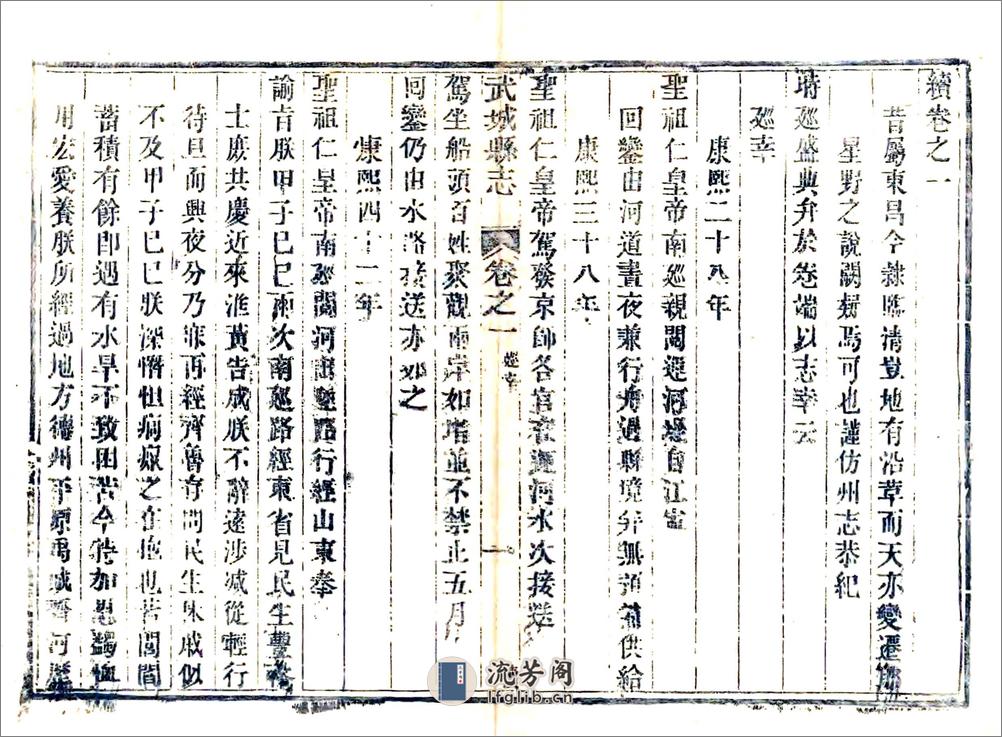 續卷之一
昔屬東昌今隸臨清豈地有沿革而天亦變遷
星野之說闕疑焉可也謹仿州志恭紀
時廵盛典弁於卷端以志幸云
廵幸
康熙二十八年
聖祖仁皇帝南廵親閱運河堤自江寧
回鑾由河道晝夜兼行舟過縣境并無預備供給
康熙三十八年
聖祖仁皇帝駕發京師各官在運河水次接送
武城縣志
卷之一
廵幸
一
駕坐船頭百姓聚觀兩岸如堵並不禁止五月
回鑾仍由水路接送亦如之
康熙四十二年
聖祖仁皇帝南廵閱河由陸路行經山東奉
諭旨朕甲子己巳兩次南廵路經東省見民生豐裕
士庶共慶近來淮黃告成朕不辭遠涉减從輕行
待旦而興夜分乃寐再經齊魯訪問民生休戚似
不及甲子己巳朕深惻怛痌瘝之在抱也若閭閻
蓄積有餘即遇有水旱不致困苦今特加恩蠲恤
用宏愛養朕所經過地方德州平原禹城齊河
流芳阁
lfglib.cn